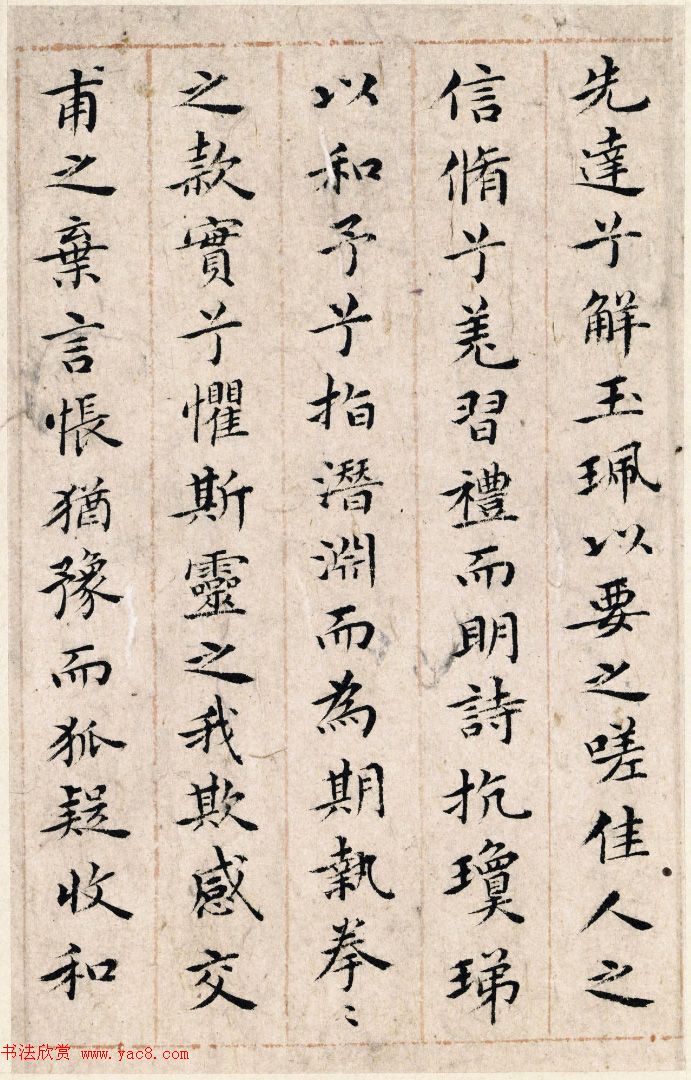 先達兮解玉珮以要之嗟佳人之
信脩兮羌習禮而明詩抗瓊珶
以和予兮指潛淵而為期執拳〻
之款實兮懼斯靈之我欺感交
甫之棄言悵猶豫而狐疑收和
书法欣赏 www.yac8.com